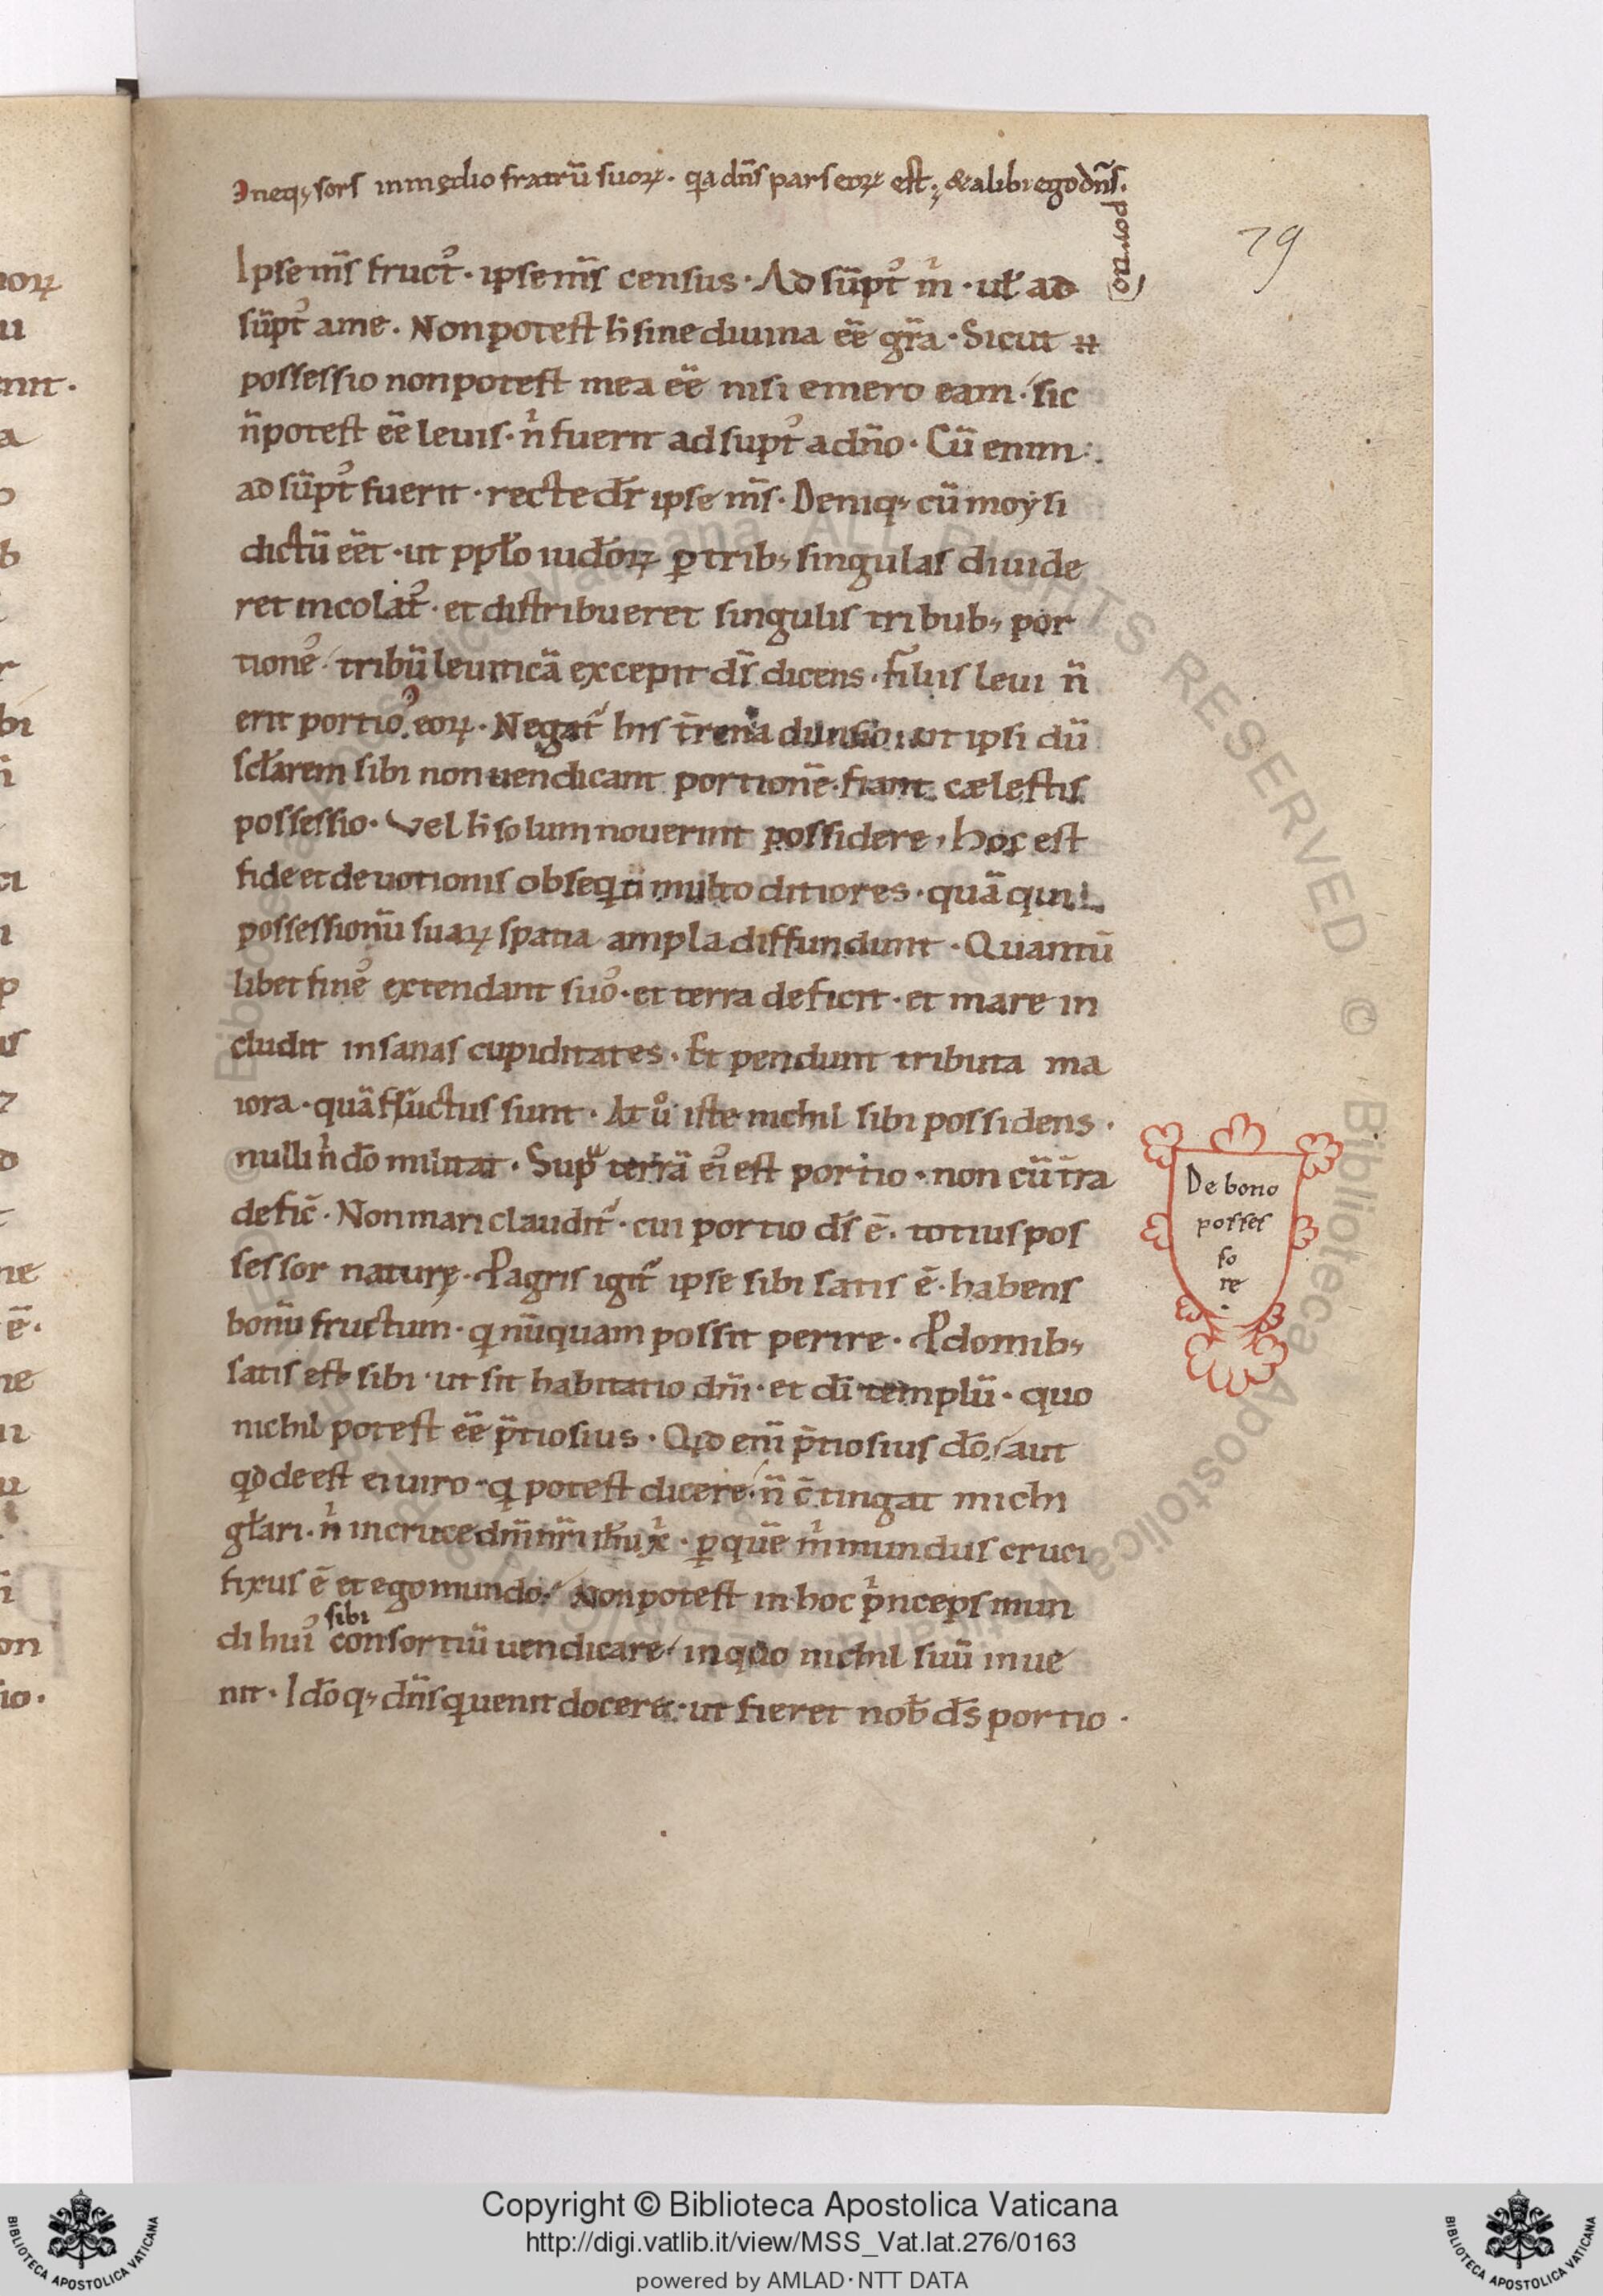 neq; sors in medio fratrū suoꝝ. qa dn̄s pars eoꝝ est. & alibi ego dn̄s.
portio
79
Ipse m̄s fruct᾽. ipse m̄s census. Ad sūpt᾽ m̍. uł ad
sūpt᾽ a me. Non potest h̄ sine diuina eē gr̄a. Sicut
possessio non potest mea eē nisi emero eam. sic
n̄ potest eē leuis. n̍ fuerit adsūpt᾽ a dn̄o. Cū enim
ad sūpt᾽ fuerit. recte dr̄ ipse m̄s. Deniq; cū moẏsi
dictū eēt. ut ppło iud̄oꝝ ꝑ trib; singulas diuide
ret incolat᾽. et distribueret singulis tribub; por
tione᾽. tribū leuiticā excepit ds̄ dicens. filiis leui n̄
erit portio eoꝝ. Negat᾽ his tr̄ena diuisio. ut ipsi dū
scłarem sibi non uendicant portionē. fiant cælestis
possessio. Vel h̄ solum nouerint possidere, hoc est
fide et deuotionis obseqii multo ditiores. quā qui
possessionū suaꝝ spatia ampla diffundunt. Quantū
libet fine᾽ extendant suo᾽. et terra deficit. et mare in
cludit insanas cupiditates. Et pendunt tributa ma
iora. quā fructus sunt. At u̾ iste nichil sibi possidens.
nulli n̍ dō militat. Sup terrā ei᾽ est portio. non cū tr̄a
defic̄. Non mari claudit᾽. cui portio ds̄ ē. totius pos
sessor naturę. P agris igit᾽ ipse sibi satis ē. habens
bonū fructum. q nūquam possit perire. P domib;
satis est sibi. ut sit habitatio dn̄i. et dī templū. quo
nichil potest eē p̄tiosius. Qd eni᾽ p̄tiosius dō, aut
qd deest ei uiro. q potest dicere. n̄ c̄tingat michi
głari. n̍ in cruce dn̄i nr̄i ih̄u x̍. ꝑ quē m̍ mundus cruci
fixus ē et ego mundo. Non potest in hoc p̍nceps mun
sibi
di hui᾽ consortiū uendicare. in quo nichil suū inue
nit. Idōq; dn̄s q uenit docere. ut fieret nob̄ ds̄ portio.
De bono
posses
so
re
Copyright © Biblioteca Apostolica Vaticana
http://digi.vatlib.it/view/MSS_Vat.lat.276/0163
powered by AMLAD·NTT DATA